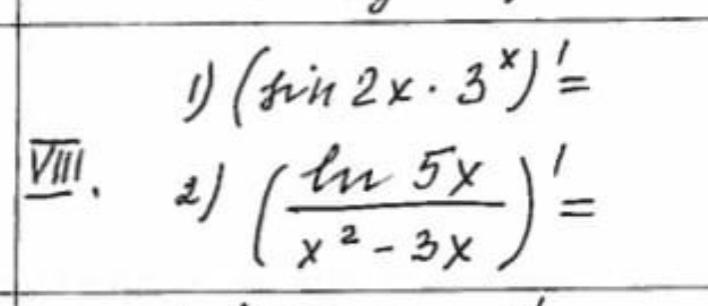 VIII.
1) (sin 2x · 3ˣ)' =
2) (ln 5x / x² - 3x)' =